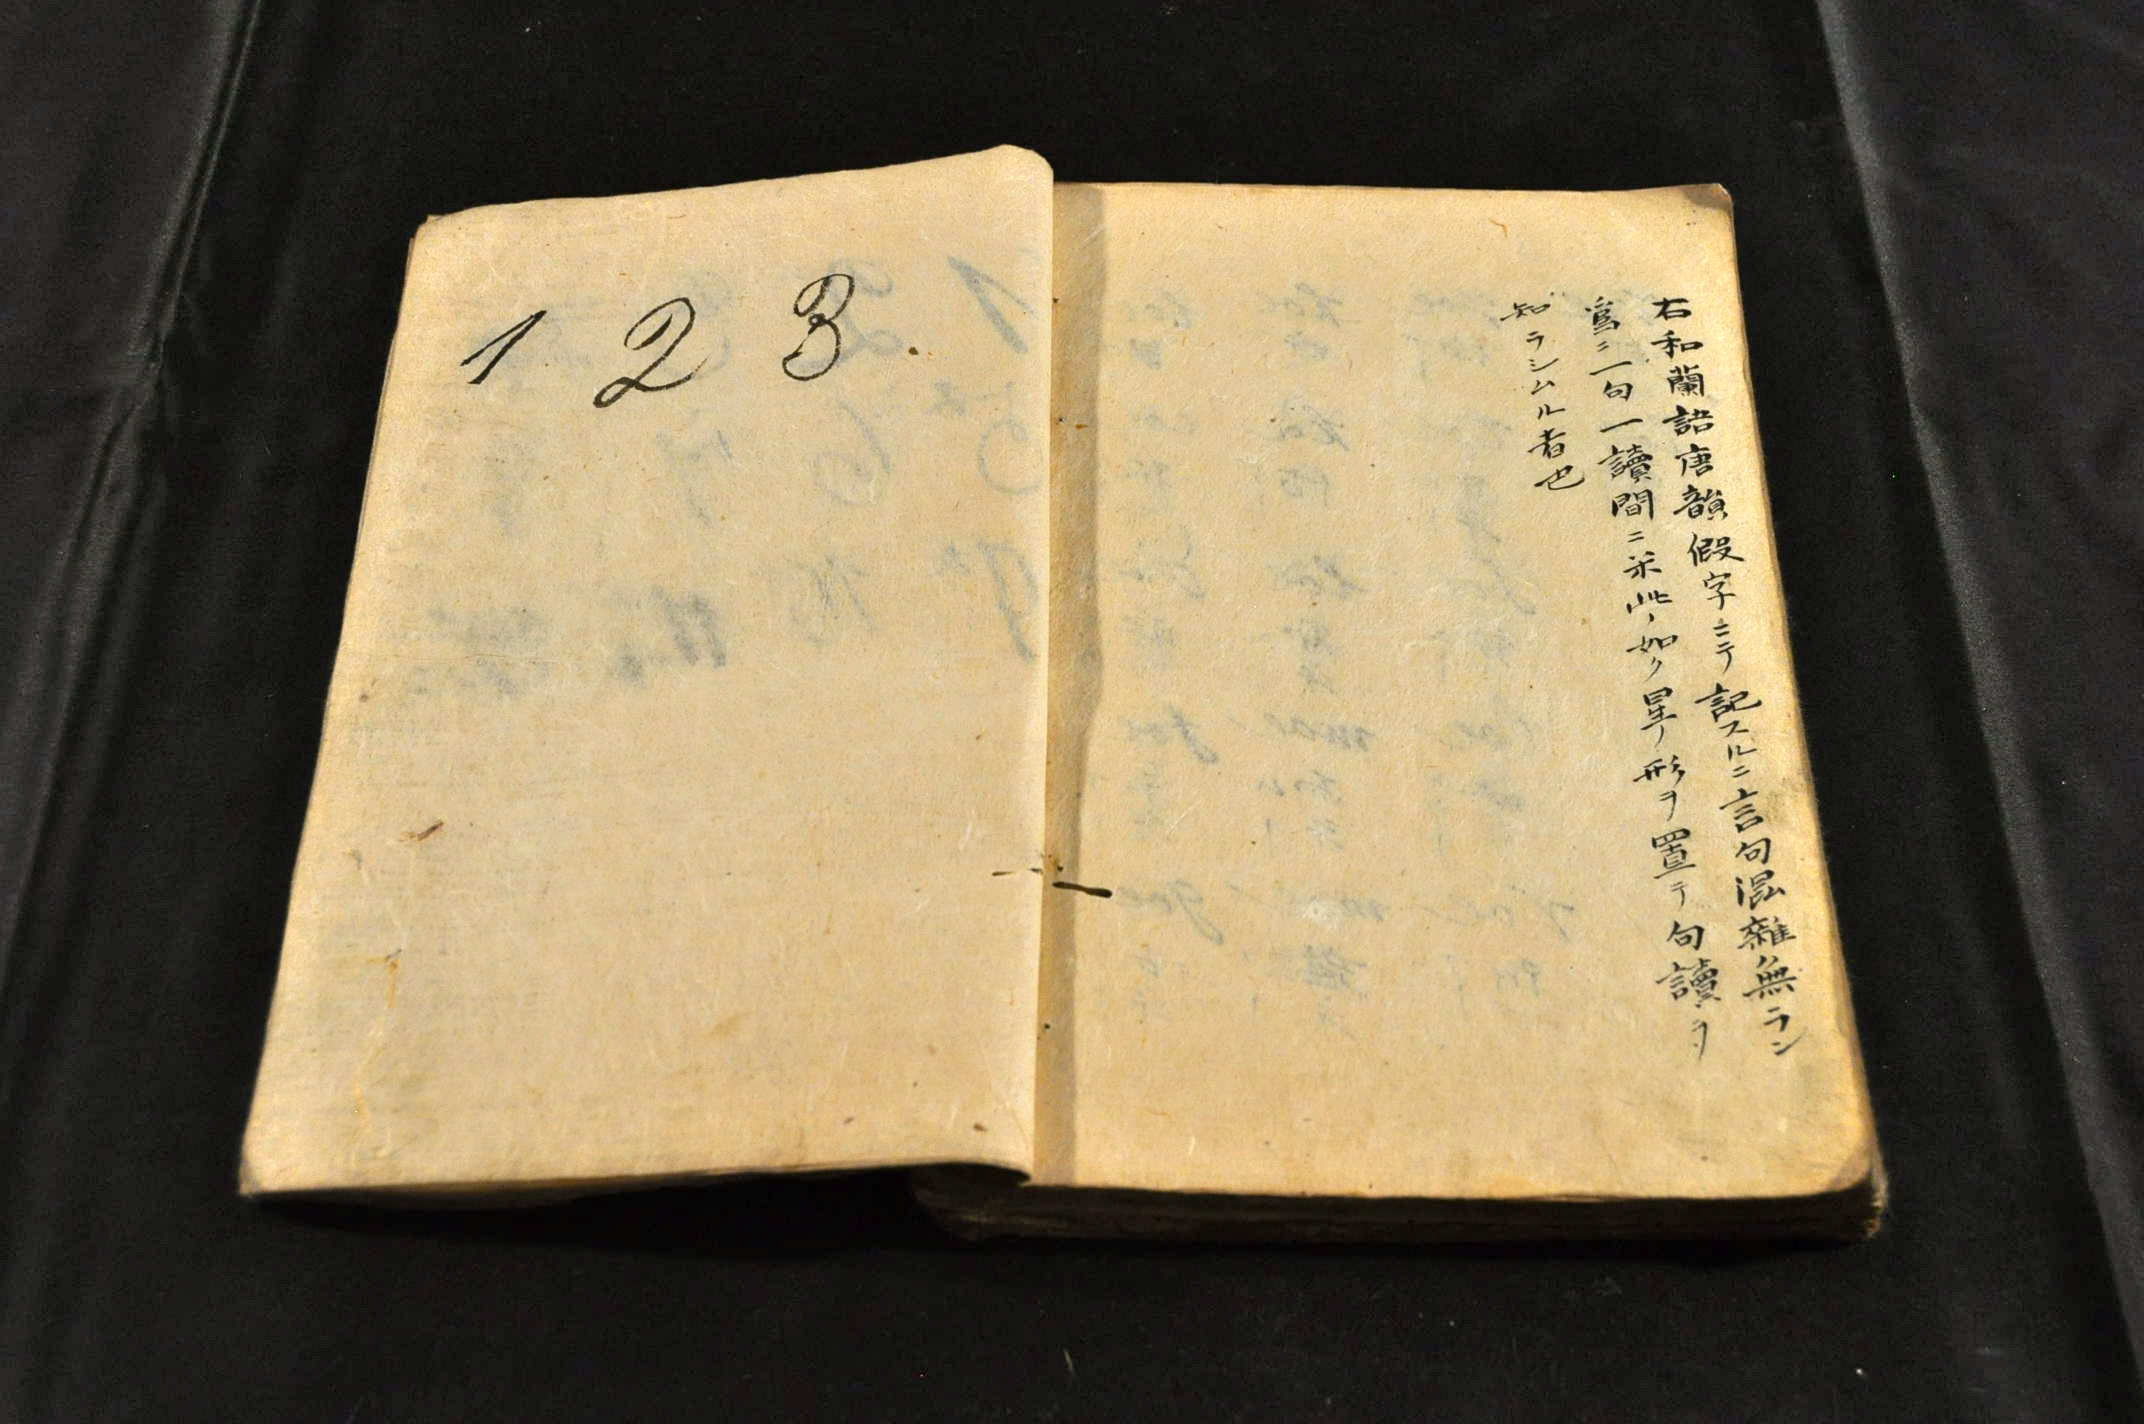 右和蘭語唐韻假字ニテ記スルニ言句混雜無ラン
爲ニ一句一讀間ニ采此ノ如ク星ノ形ヲ置テ句讀ヲ
知ラシムル者也
1 2 3.